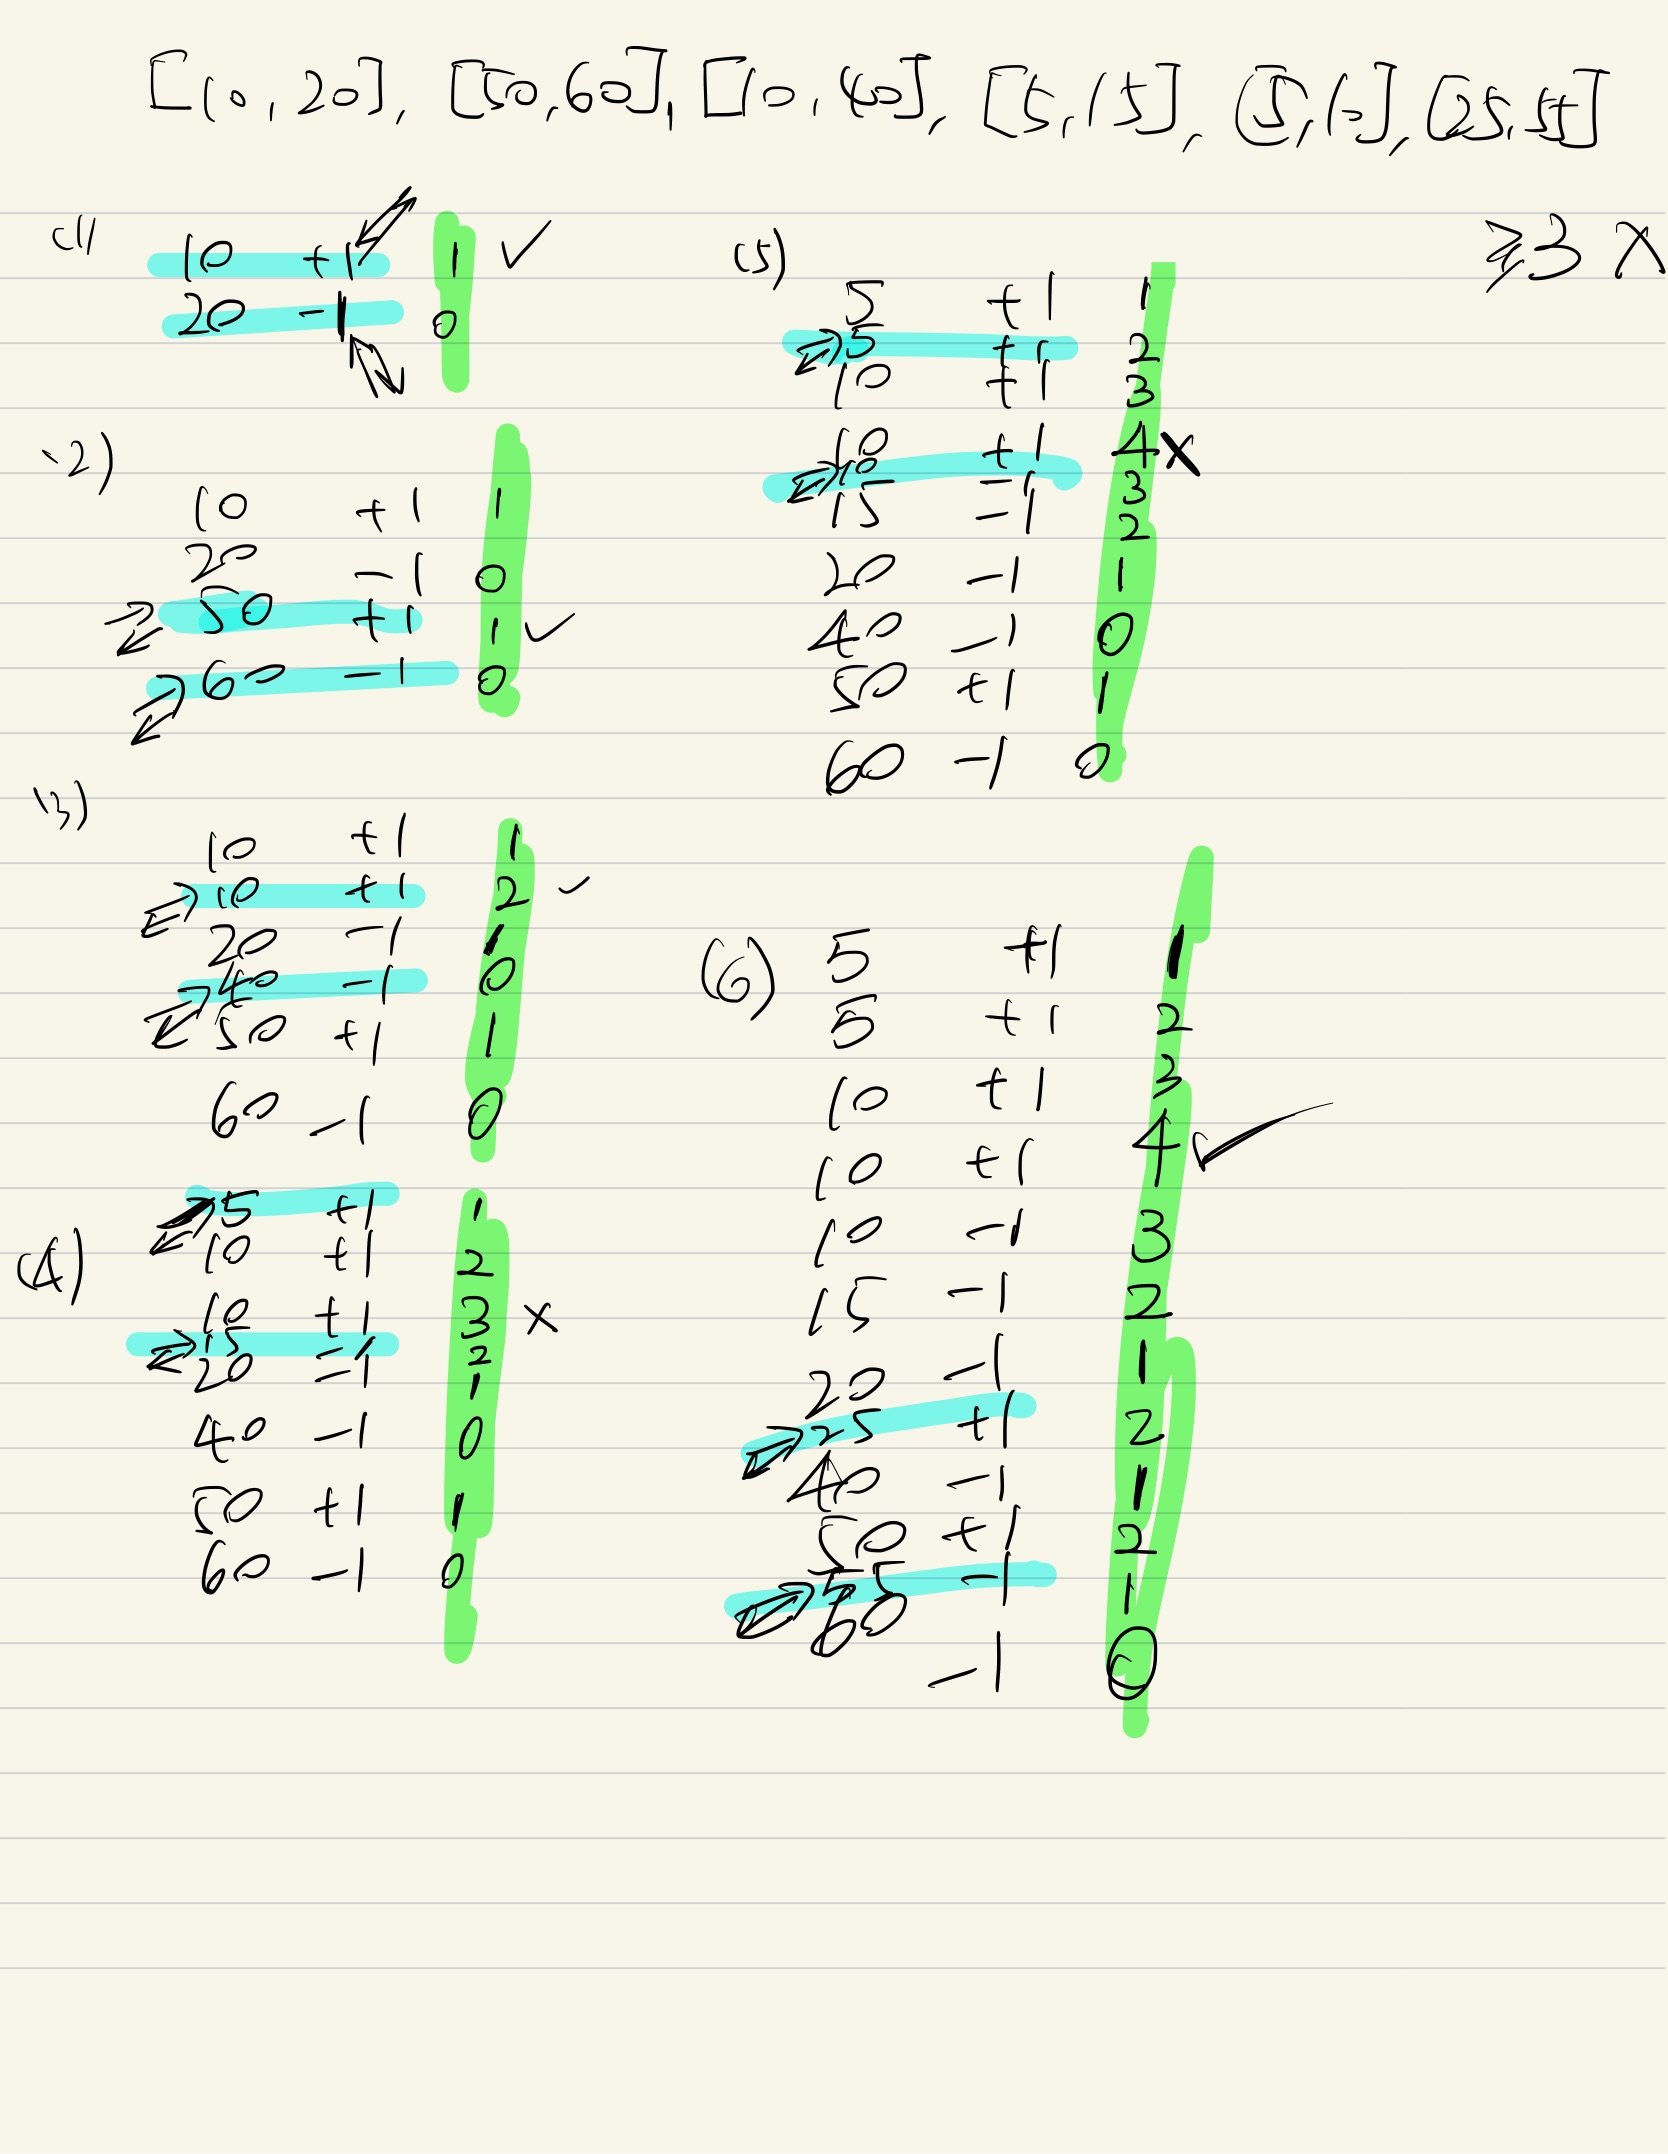 [10, 20], [50, 60], [10, 40], [5, 15], [5, 10], [25, 55]
≥3 X
(1)
10 +1 1 ✓
20 -1 0
(2)
10 +1 1
20 -1 0
50 +1 1 ✓
60 -1 0
(3)
10 +1 1
10 +1 2 ✓
20 -1 1
40 -1 0
50 +1 1
60 -1 0
(4)
5 +1 1
10 +1 2
10 +1 3 X
15 -1 2
20 -1 1
40 -1 0
50 +1 1
60 -1 0
(5)
5 +1 1
5 +1 2
10 +1 3
10 +1 4 X
10 -1 3
15 -1 2
20 -1 1
40 -1 0
50 +1 1
60 -1 0
(6)
5 +1 1
5 +1 2
10 +1 3
10 +1 4 ✓
10 -1 3
15 -1 2
20 -1 1
25 +1 2
40 -1 1
50 +1 2
55 -1 1
60 -1 0